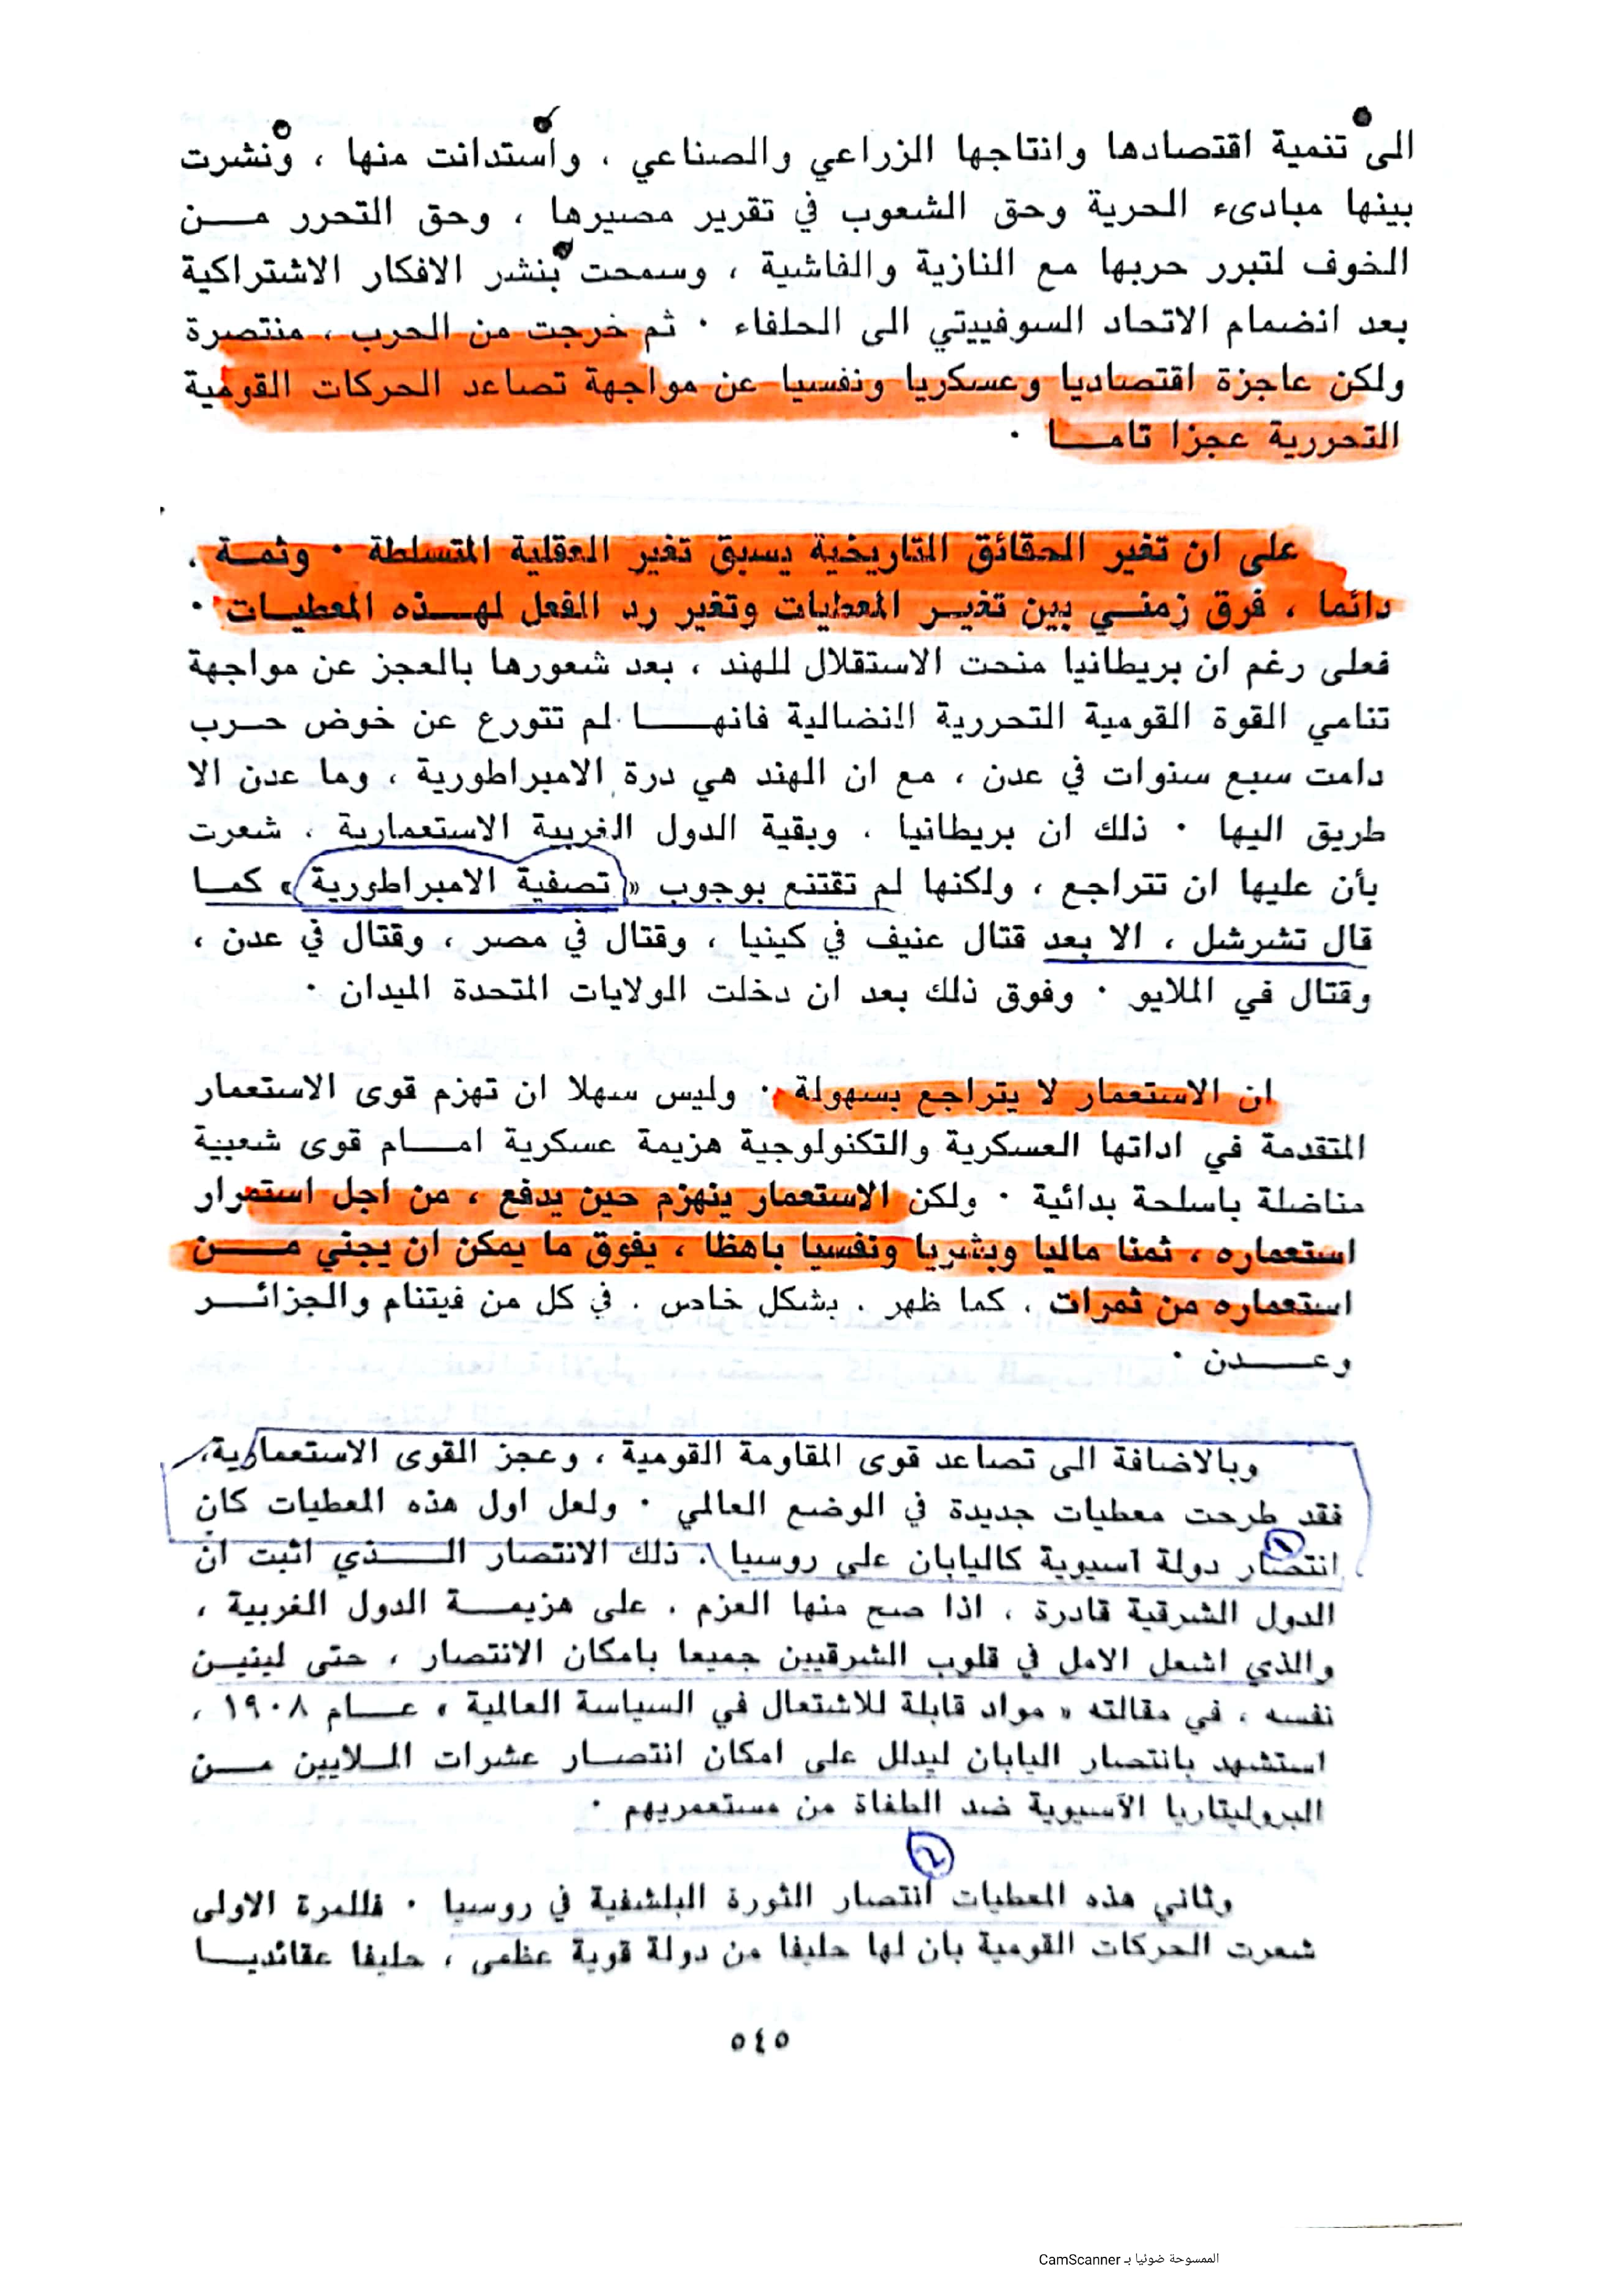 الى تنمية اقتصادها وانتاجها الزراعي والصناعي ، واستدانت منها ، ونشرت
بينها مبادىء الحرية وحق الشعوب في تقرير مصيرها ، وحق التحرر مــن
الخوف لتبرر حربها مع النازية والفاشية ، وسمحت بنشر الافكار الاشتراكية
بعد انضمام الاتحاد السوفييتي الى الحلفاء ٠ ثم خرجت من الحرب ، منتصرة
ولكن عاجزة اقتصاديا وعسكريا ونفسيا عن مواجهة تصاعد الحركات القومية
التحررية عجزا تامــا ٠
على ان تغير الحقائق التاريخية يسبق تغير العقلية المتسلطة ٠ وثمــة ،
دائما ، فرق زمنــي بين تغيــر المعطيات وتغير رد الفعل لهــذه المعطيــات ٠
فعلى رغم ان بريطانيا منحت الاستقلال للهند ، بعد شعورها بالعجز عن مواجهة
تنامي القوة القومية التحررية النضالية فانهــا لم تتورع عن خوض حــرب
دامت سبع سنوات في عدن ، مع ان الهند هي درة الامبراطورية ، وما عدن الا
طريق اليها ٠ ذلك ان بريطانيا ، وبقية الدول الغربية الاستعمارية ، شعرت
بأن عليها ان تتراجع ، ولكنها لم تقتنع بوجوب « تصفية الامبراطورية » كمــا
قال تشرشل ، الا بعد قتال عنيف في كينيا ، وقتال في مصر ، وقتال في عدن ،
وقتال في الملايو ٠ وفوق ذلك بعد ان دخلت الولايات المتحدة الميدان ٠
ان الاستعمار لا يتراجع بسهولة ٠ وليس سهلا ان تهزم قوى الاستعمار
المتقدمة في اداتها العسكرية والتكنولوجية هزيمة عسكرية امــام قوى شعبية
مناضلة باسلحة بدائية ٠ ولكن الاستعمار ينهزم حين يدفع ، من اجل استمرار
استعماره ، ثمنا ماليا وبشريا ونفسيا باهظا ، يفوق ما يمكن ان يجني مــن
استعماره من ثمرات ، كما ظهر ، بشكل خاص ، في كل من فيتنام والجزائــر
وعــدن ٠
وبالاضافة الى تصاعد قوى المقاومة القومية ، وعجز القوى الاستعمارية،
فقد طرحت معطيات جديدة في الوضع العالمي ٠ ولعل اول هذه المعطيات كان
١
انتصار دولة آسيوية كاليابان على روسيا ، ذلك الانتصار الــذي اثبت ان
الدول الشرقية قادرة ، اذا صح منها العزم ، على هزيمــة الدول الغربية ،
والذي اشعل الامل في قلوب الشرقيين جميعا بامكان الانتصار ، حتى لينيــن
نفسه ، في مقالته « مواد قابلة للاشتعال في السياسة العالمية » عــام ١٩٠٨ ،
استشهد بانتصار اليابان ليدلل على امكان انتصــار عشرات المــلايين مــن
البروليتاريا الآسيوية ضد الطغاة من مستعمريهم ٠
٢
وثاني هذه المعطيات انتصار الثورة البلشفية في روسيا ٠ فللمرة الاولى
شعرت الحركات القومية بان لها حليفا من دولة قوية عظمى ، حليفا عقائديــا
٥٤٥
الممسوحة ضوئيا بـ CamScanner